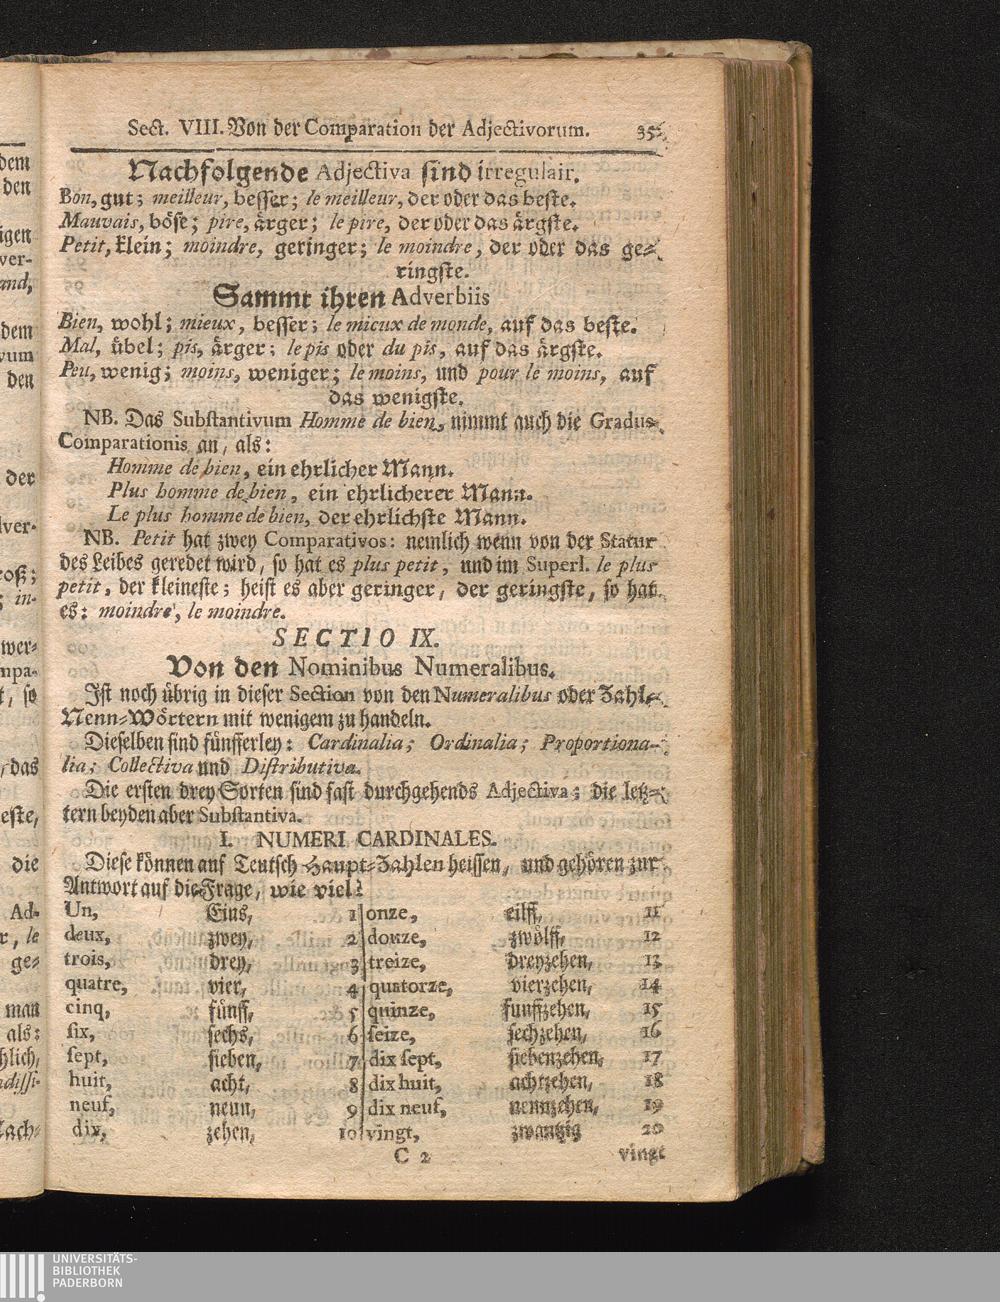 Sect. VIII. Von der Comparation der Adjectivorum. 35
Nachfolgende Adjectiva sind irregulair.
Bon, gut; meilleur, besser; le meilleur, der oder das beste.
Mauvais, böse; pire, ärger; le pire, der oder das ärgste.
Petit, klein; moindre, geringer; le moindre, der oder das ge-
ringste.
Sammt ihren Adverbiis
Bien, wohl; mieux, besser; le mieux de monde, auf das beste.
Mal, übel; pis, ärger; le pis oder du pis, auf das ärgste.
Peu, wenig; moins, weniger; le moins, und pour le moins, auf
das wenigste.
NB. Das Substantivum Homme de bien, nimmt auch die Gradus
Comparationis an, als:
Homme de bien, ein ehrlicher Mann.
Plus homme de bien, ein ehrlicherer Mann.
Le plus homme de bien, der ehrlichste Mann.
NB. Petit hat zwey Comparativos: nemlich wenn von der Statur
des Leibes geredet wird, so hat es plus petit, und im Superl. le plus
petit, der kleineste; heist es aber geringer, der geringste, so hat
es: moindre, le moindre.
SECTIO IX.
Von den Nominibus Numeralibus.
Ist noch übrig in dieser Section von den Numeralibus oder Zahl-
Nenn-Wörtern mit wenigem zu handeln.
Dieselben sind fünfferley: Cardinalia; Ordinalia; Proportiona-
lia; Collectiva und Distributiva.
Die ersten drey Sorten sind fast durchgehends Adjectiva; die letz-
tern beyden aber Substantiva.
I. NUMERI CARDINALES.
Diese können auf Teutsch Haupt-Zahlen heissen, und gehören zur
Antwort auf die Frage, wie viel?
Un, Eins, 1 onze, eilff, 11
deux, zwey, 2 douze, zwölff, 12
trois, drey, 3 treize, dreyzehen, 13
quatre, vier, 4 quatorze, vierzehen, 14
cinq, fünff, 5 quinze, funffzehen, 15
six, sechs, 6 seize, sechzehen, 16
sept, sieben, 7 dix sept, siebenzehen, 17
huit, acht, 8 dix huit, achtzehen, 18
neuf, neun, 9 dix neuf, neunzehen, 19
dix, zehen, 10 vingt, zwantzig 20
C 2 vingt
UNIVERSITÄTS-
BIBLIOTHEK
PADERBORN